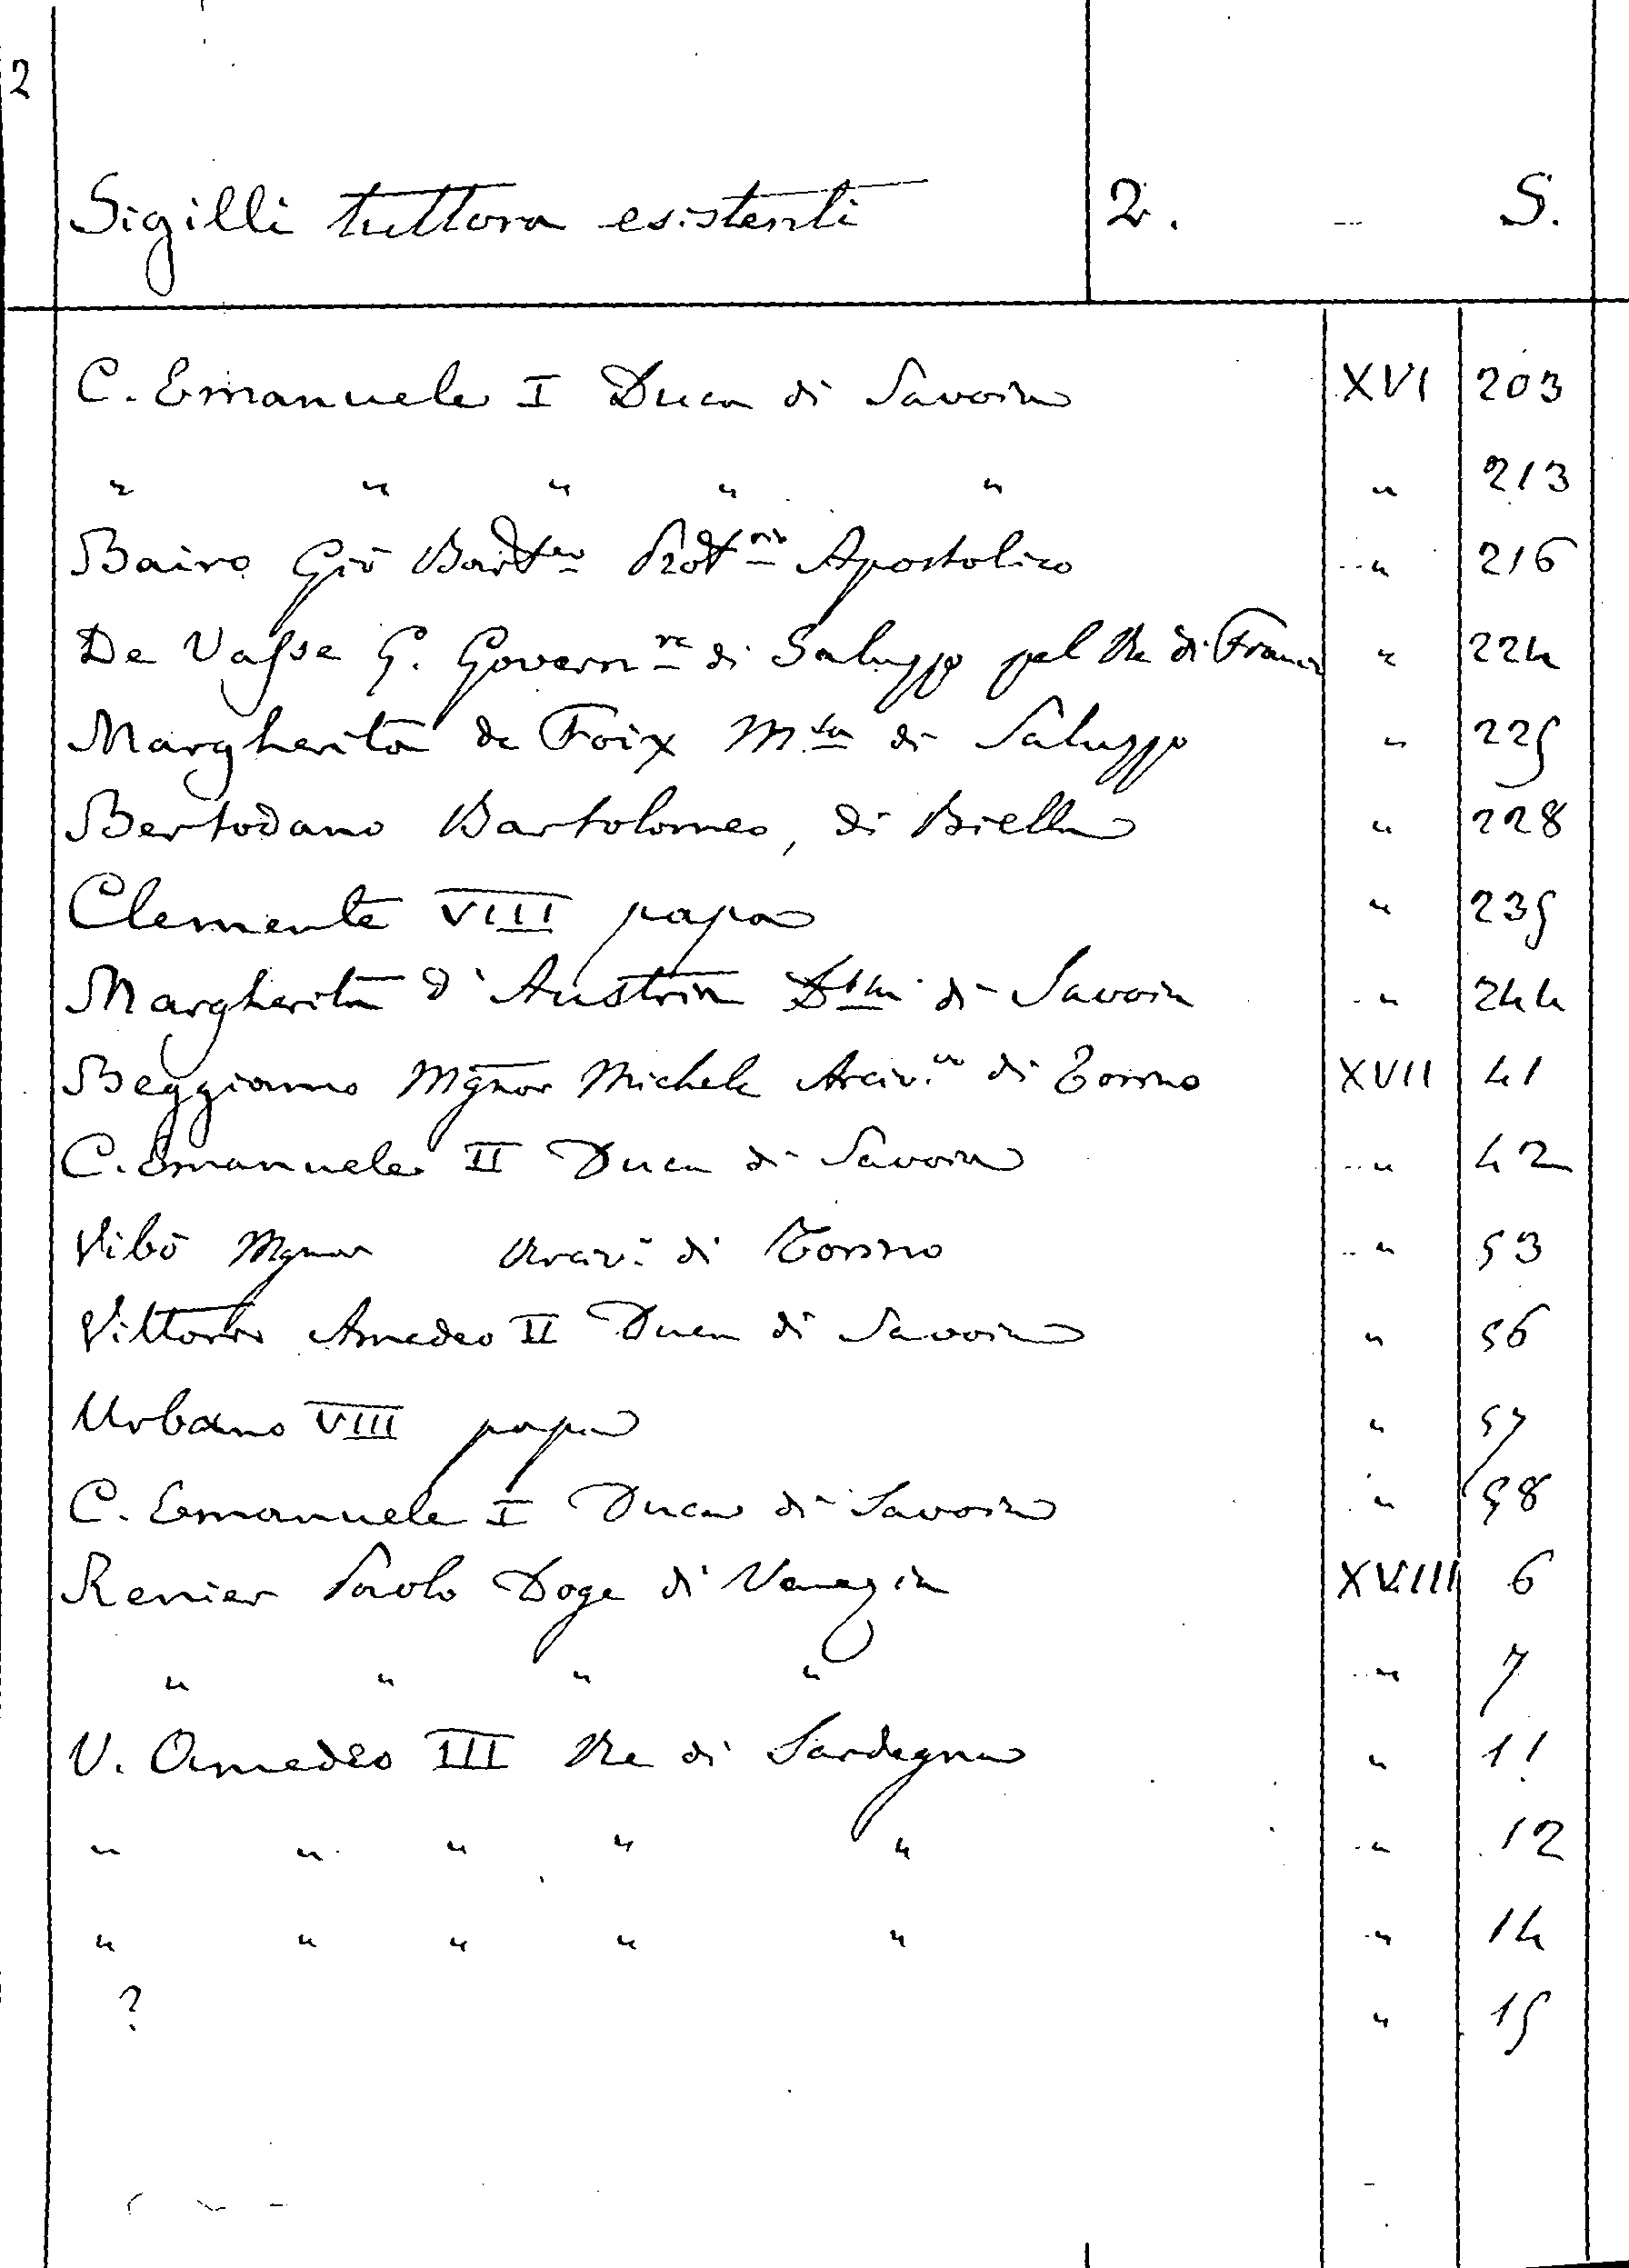 2
Sigilli tuttora esistenti 2. S.
C. Emanuele I Duca di Savoia XVI 203
" " " " " " 213
Bairo Gio Bart.eo Prot.rio Apostolico " 216
De Vasse G. Govern.re di Saluzzo pel Re di Francia " 224
Margherita de Foix M.sa di Saluzzo " 225
Bertodano Bartolomeo, di Biella " 228
Clemente VIII papa " 235
Margherita d'Austria D.ssa di Savoia " 244
Beggiamo Mgnor Michele Arciv.vo di Torino XVII 41
C. Emanuele II Duca di Savoia " 42
Vibò Mgnor Arciv.o di Torino " 53
Vittorio Amedeo II Duca di Savoia " 56
Urbano VIII papa " 57
C. Emanuele I Duca di Savoia " 58
Renier Paolo Doge di Venezia XVIII 6
" " " " " 7
V. Amedeo III Re di Sardegna " 11
" " " " " " 12
" " " " " " 14
? " 15